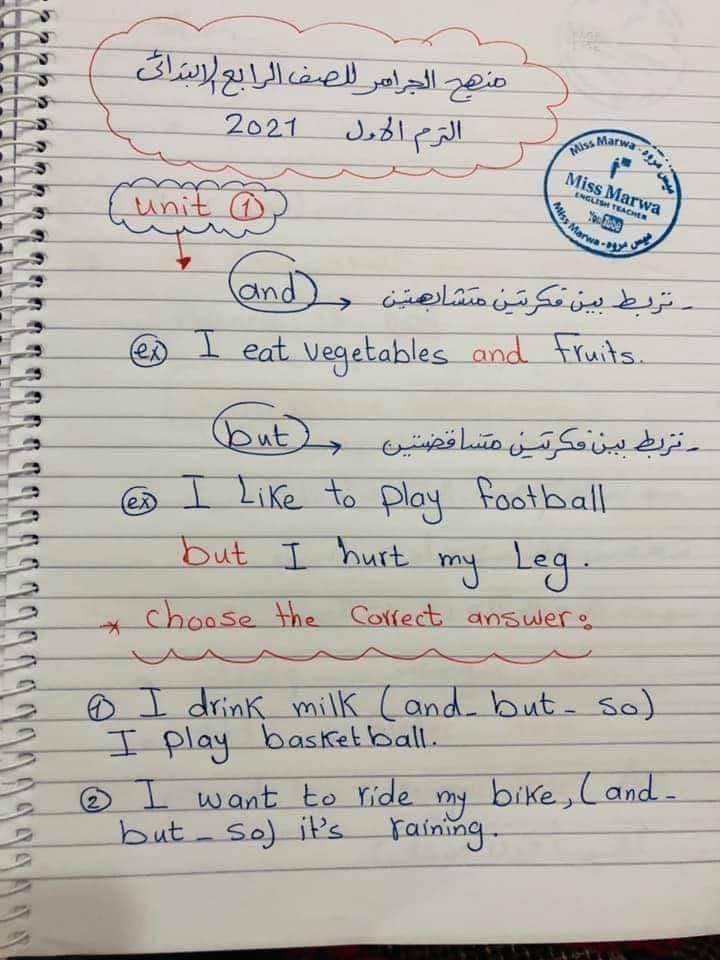 منهج الجرامر للصف الرابع الابتدائى
الترم الاول 2021
Miss Marwa - ميس مروه
Miss Marwa
ENGLISH TEACHER
YouTube
Miss Marwa - ميس مروه
unit ①
and → - تربط بين فكرتين متشابهتين
ex I eat vegetables and fruits.
but → - تربط بين فكرتين متناقضتين
ex I Like to play football
but I hurt my Leg.
* choose the Correct answer:
① I drink milk (and - but - so)
I play basketball.
② I want to ride my bike, (and -
but - so) it's raining.